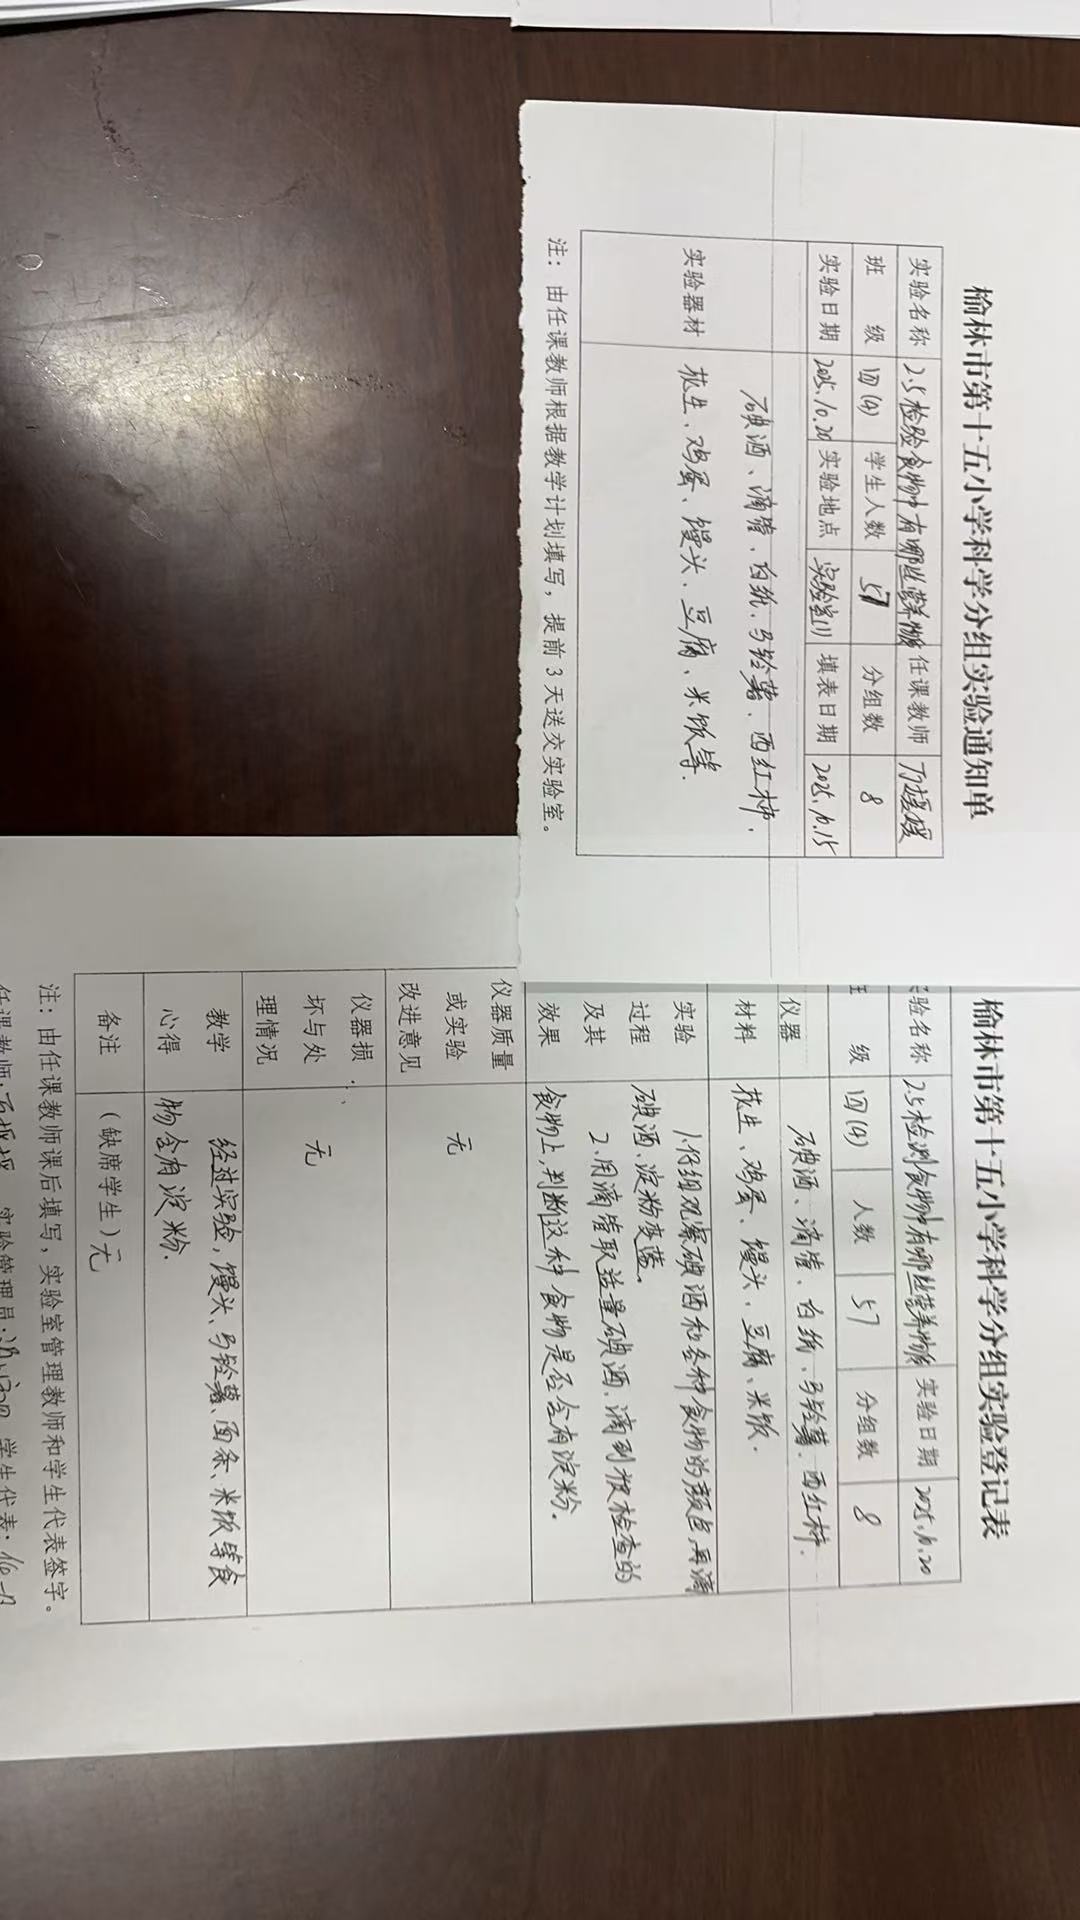 榆林市第十五小学科学分组实验通知单
实验名称 2.5检验食物中有哪些营养物质 任课教师
班 级 四(4) 学生人数 57 分组数 8
实验日期 2025.10.20 实验地点 实验室(1) 填表日期 2025.10.15
实验器材
碘酒、滴管、白纸、马铃薯、西红柿、
花生、鸡蛋、馒头、豆腐、米饭等.
注：由任课教师根据教学计划填写，提前3天送交实验室。
榆林市第十五小学科学分组实验登记表
验名称 2.5检测食物中有哪些营养物质 实验日期 2025.10.20
级 四(4) 人数 57 分组数 8
仪器
材料
碘酒、滴管、白纸、马铃薯、西红柿、
花生、鸡蛋、馒头、豆腐、米饭.
实验
过程
及其
效果
1.仔细观察碘酒和各种食物的颜色,再滴
碘酒,淀粉变蓝。
2.用滴管取适量碘酒、滴到被检查的
食物上,判断这种食物是否含有淀粉.
仪器质量
或实验
改进意见
无
仪器损
坏与处
理情况
无
教学
心得
经过实验，馒头、马铃薯、面条、米饭等食
物含有淀粉.
备注 (缺席学生)无
注：由任课教师课后填写，实验室管理教师和学生代表签字。
任课教师: 实验管理员: 学生代表: